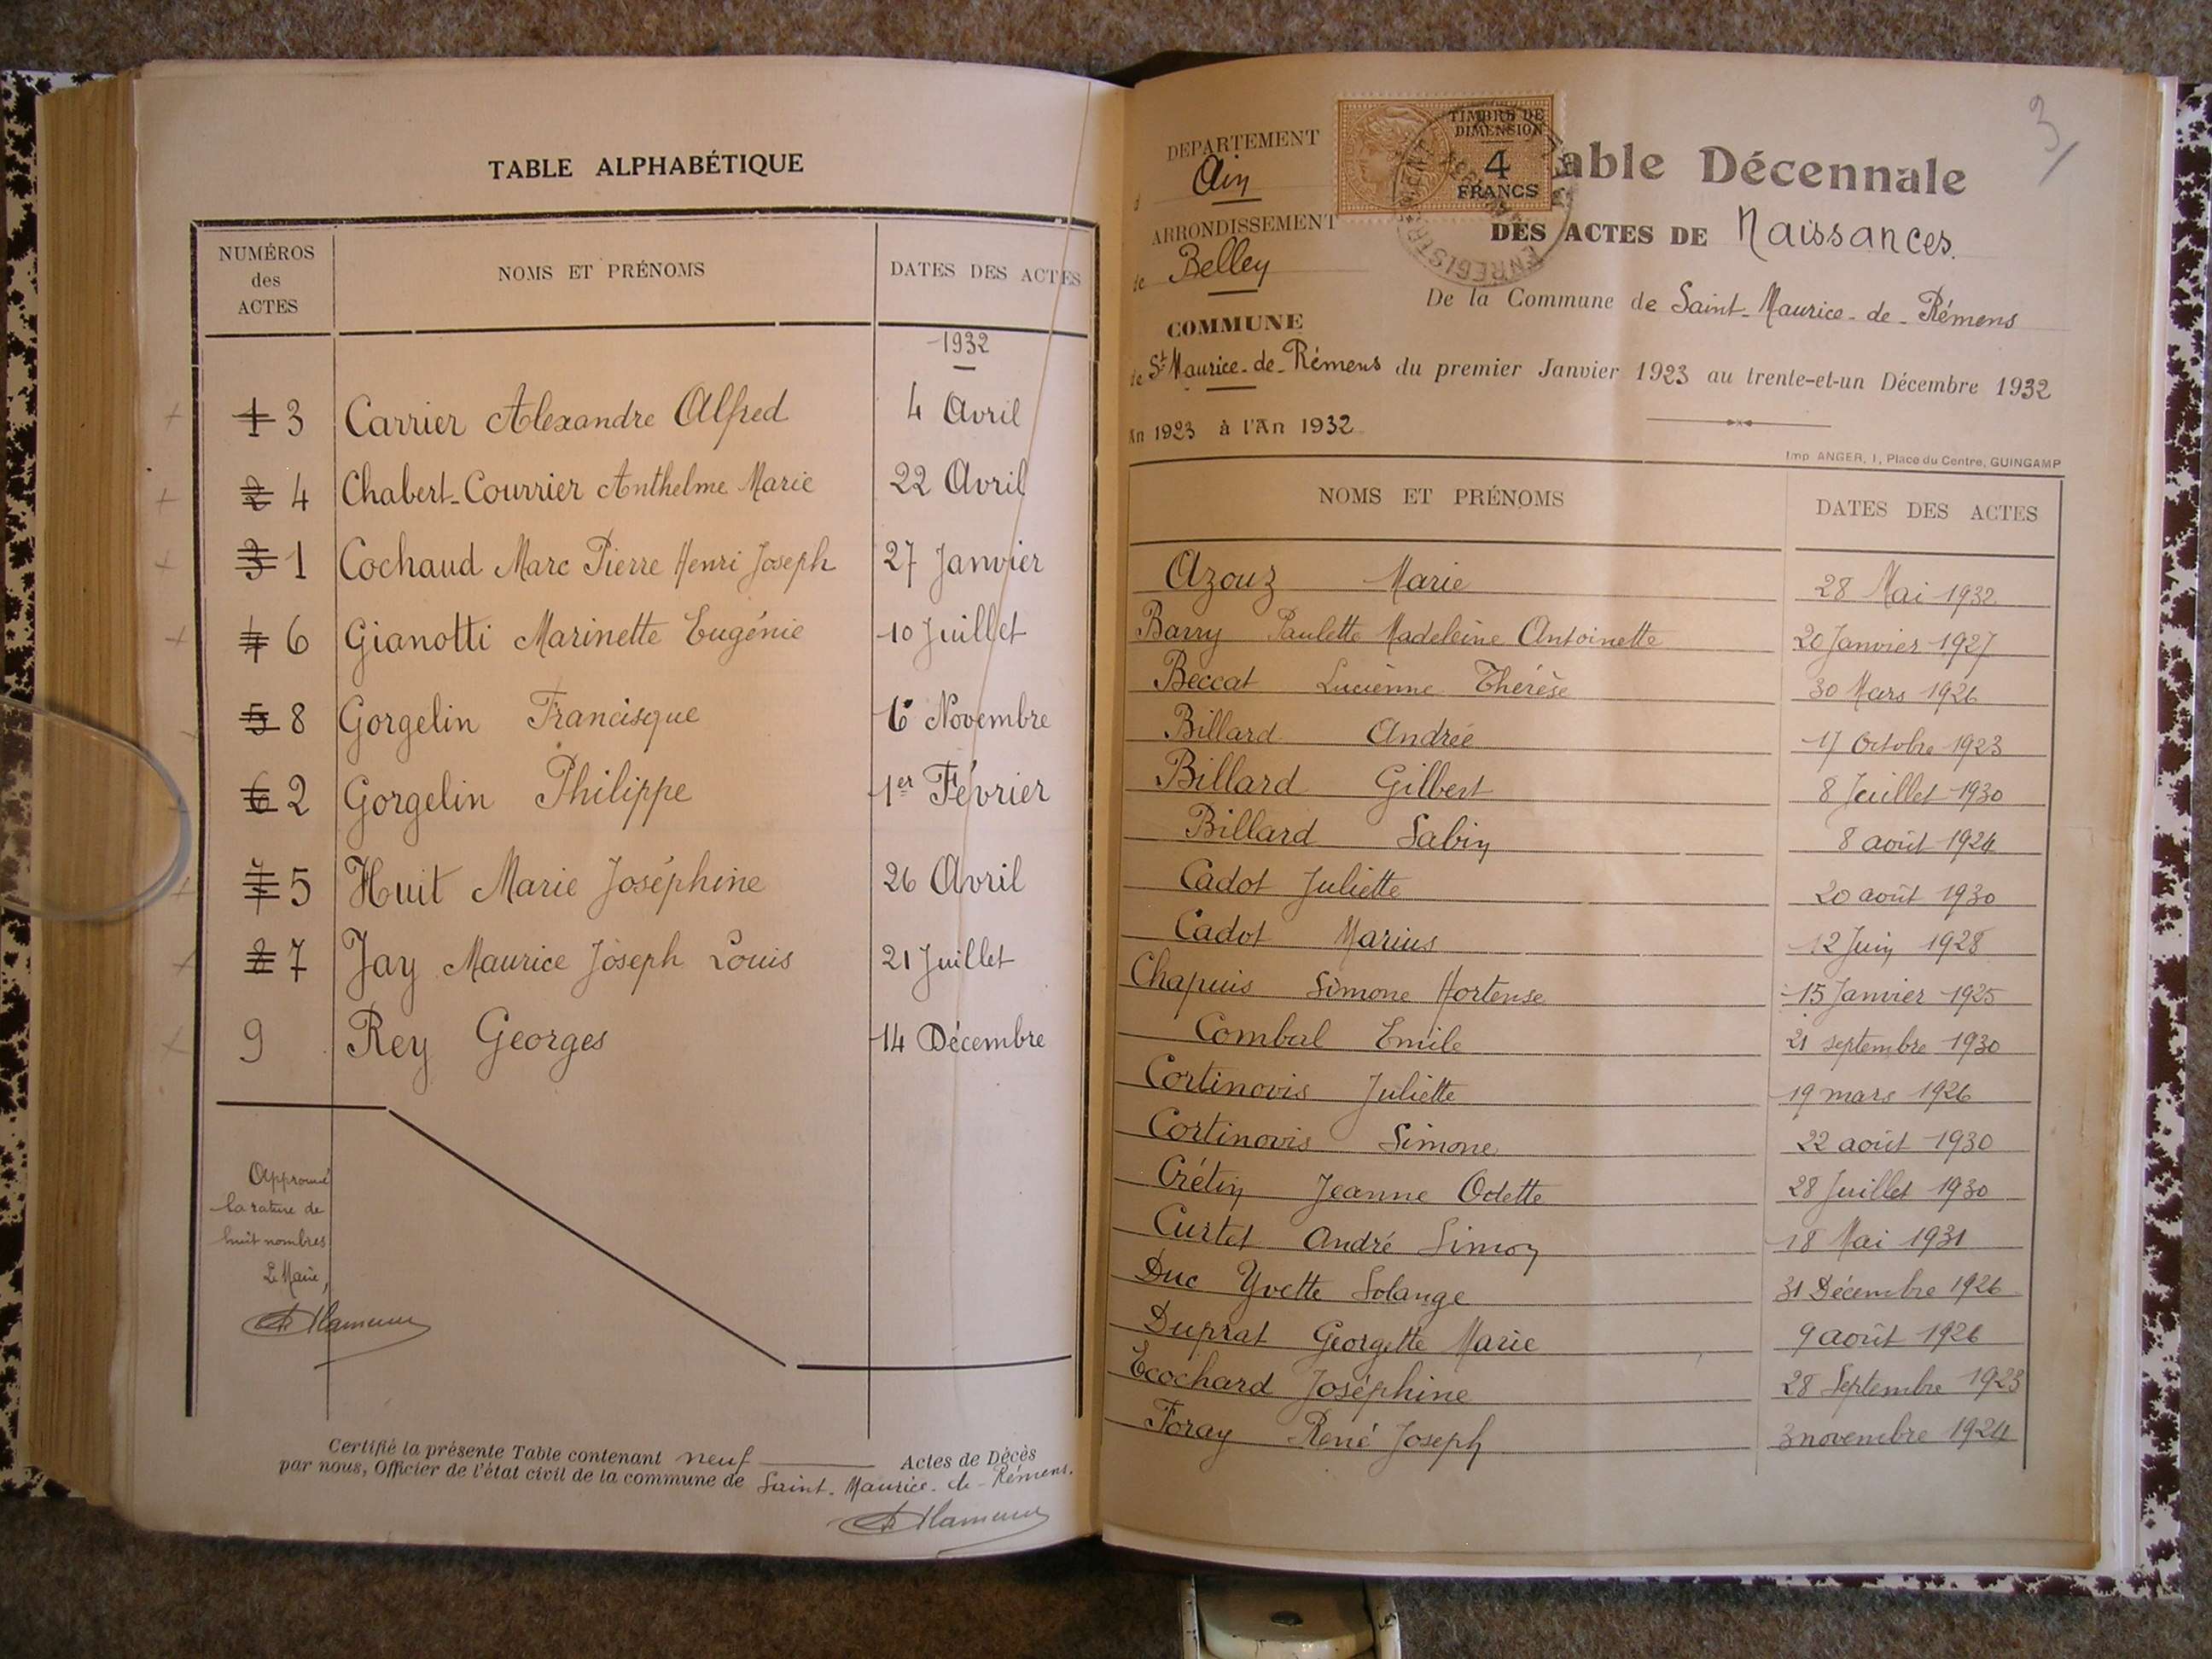 TABLE ALPHABÉTIQUE
NUMÉROS des ACTES
NOMS ET PRÉNOMS
DATES DES ACTES
1932
1 3 Carrier Alexandre Alfred 4 Avril
2 4 Chabert-Courrier Anthelme Marie 22 Avril
3 1 Cochaud Marc Pierre Henri Joseph 27 Janvier
4 6 Gianotti Marinette Eugénie 10 Juillet
5 8 Gorgelin Francisque Novembre
6 2 Gorgelin Philippe 1er Février
7 5 Huit Marie Joséphine 26 Avril
8 7 Jay Maurice Joseph Louis 21 Juillet
9 Rey Georges 14 Décembre
Approuvé
la rature de
huit nombres
Le Maire,
Certifié la présente Table contenant neuf Actes de Décès
par nous, Officier de l'état civil de la commune de Saint-Maurice-de-Rémens.
3
DEPARTEMENT
d Ain
ARRONDISSEMENT
de Belley
COMMUNE
de St Maurice-de-Rémens
An 1923 à l'An 1932
TIMBRE DE
DIMENSION
4
FRANCS
ENREGISTREMENT
able Décennale
DES ACTES DE Naissances.
De la Commune de Saint-Maurice-de-Rémens
du premier Janvier 1923 au trente-et-un Décembre 1932
Imp. ANGER, 1, Place du Centre, GUINGAMP
NOMS ET PRÉNOMS
DATES DES ACTES
Azouz Marie 28 Mai 1932
Barry Paulette Madeleine Antoinette 20 Janvier 1927
Beccat Lucienne Thérèse 30 Mars 1926
Billard Andrée 17 Octobre 1923
Billard Gilbert 8 Juillet 1930
Billard Sabin 8 août 1924
Cadot Juliette 20 août 1930
Cadot Marius 12 Juin 1928
Chapuis Simone Hortense 15 Janvier 1925
Combal Emile 21 septembre 1930
Cortinovis Juliette 19 mars 1926
Cortinovis Simone 22 août 1930
Crétin Jeanne Odette 28 Juillet 1930
Curtet André Simon 18 Mai 1931
Duc Yvette Solange 31 Décembre 1926
Duprat Georgette Marie 9 août 1926
Ecochard Joséphine 28 Septembre 1923
Foray René Joseph 3 novembre 1924